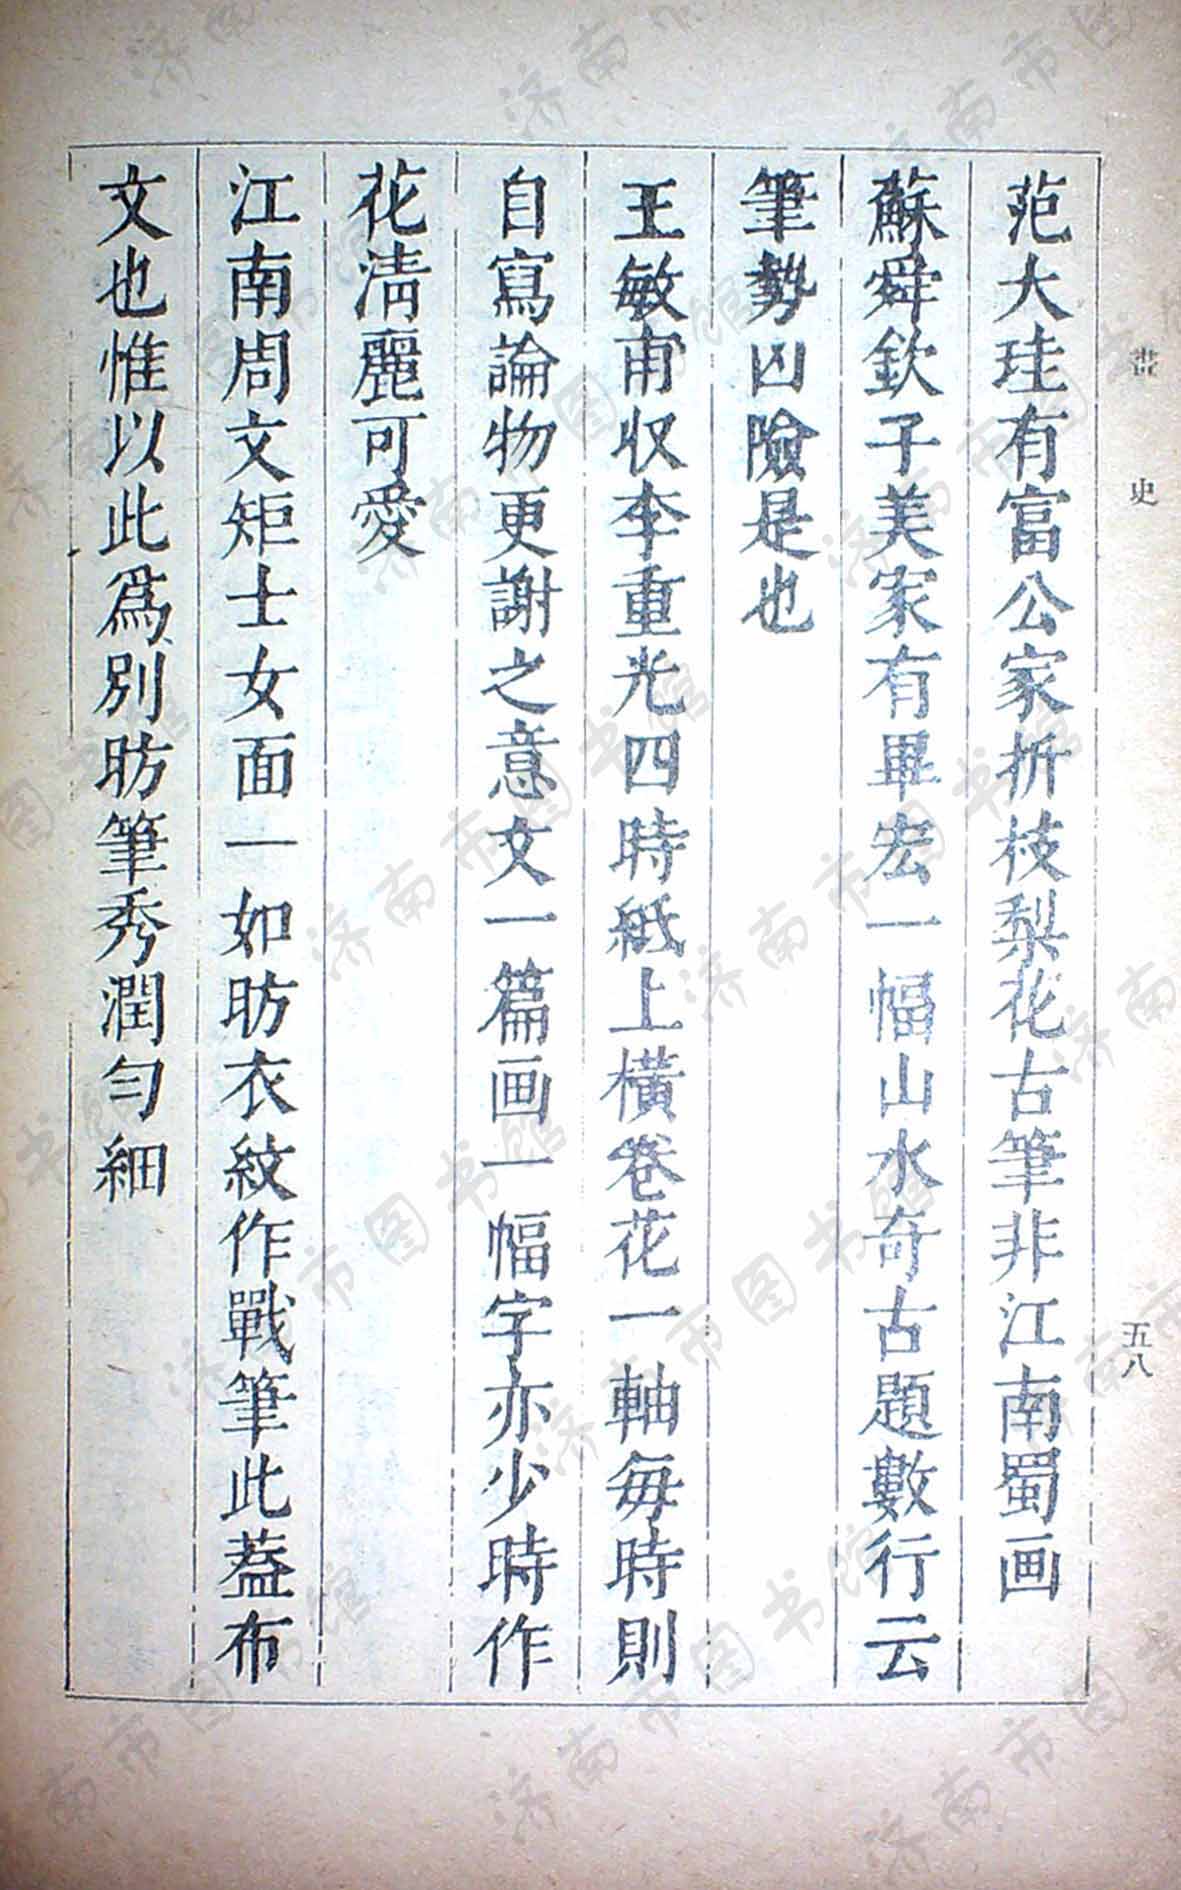 畫史
五八
范大珪有富公家折枝梨花古筆非江南蜀画
蘇舜欽子美家有畢宏一幅山水奇古題數行云
筆勢凶險是也
王敏甫収李重光四時紙上橫卷花一軸每時則
自寫論物更謝之意文一篇画一幅字亦少時作
花淸麗可愛
江南周文矩士女面一如昉衣紋作戰筆此蓋布
文也惟以此爲別昉筆秀潤勻細
济南市图书馆